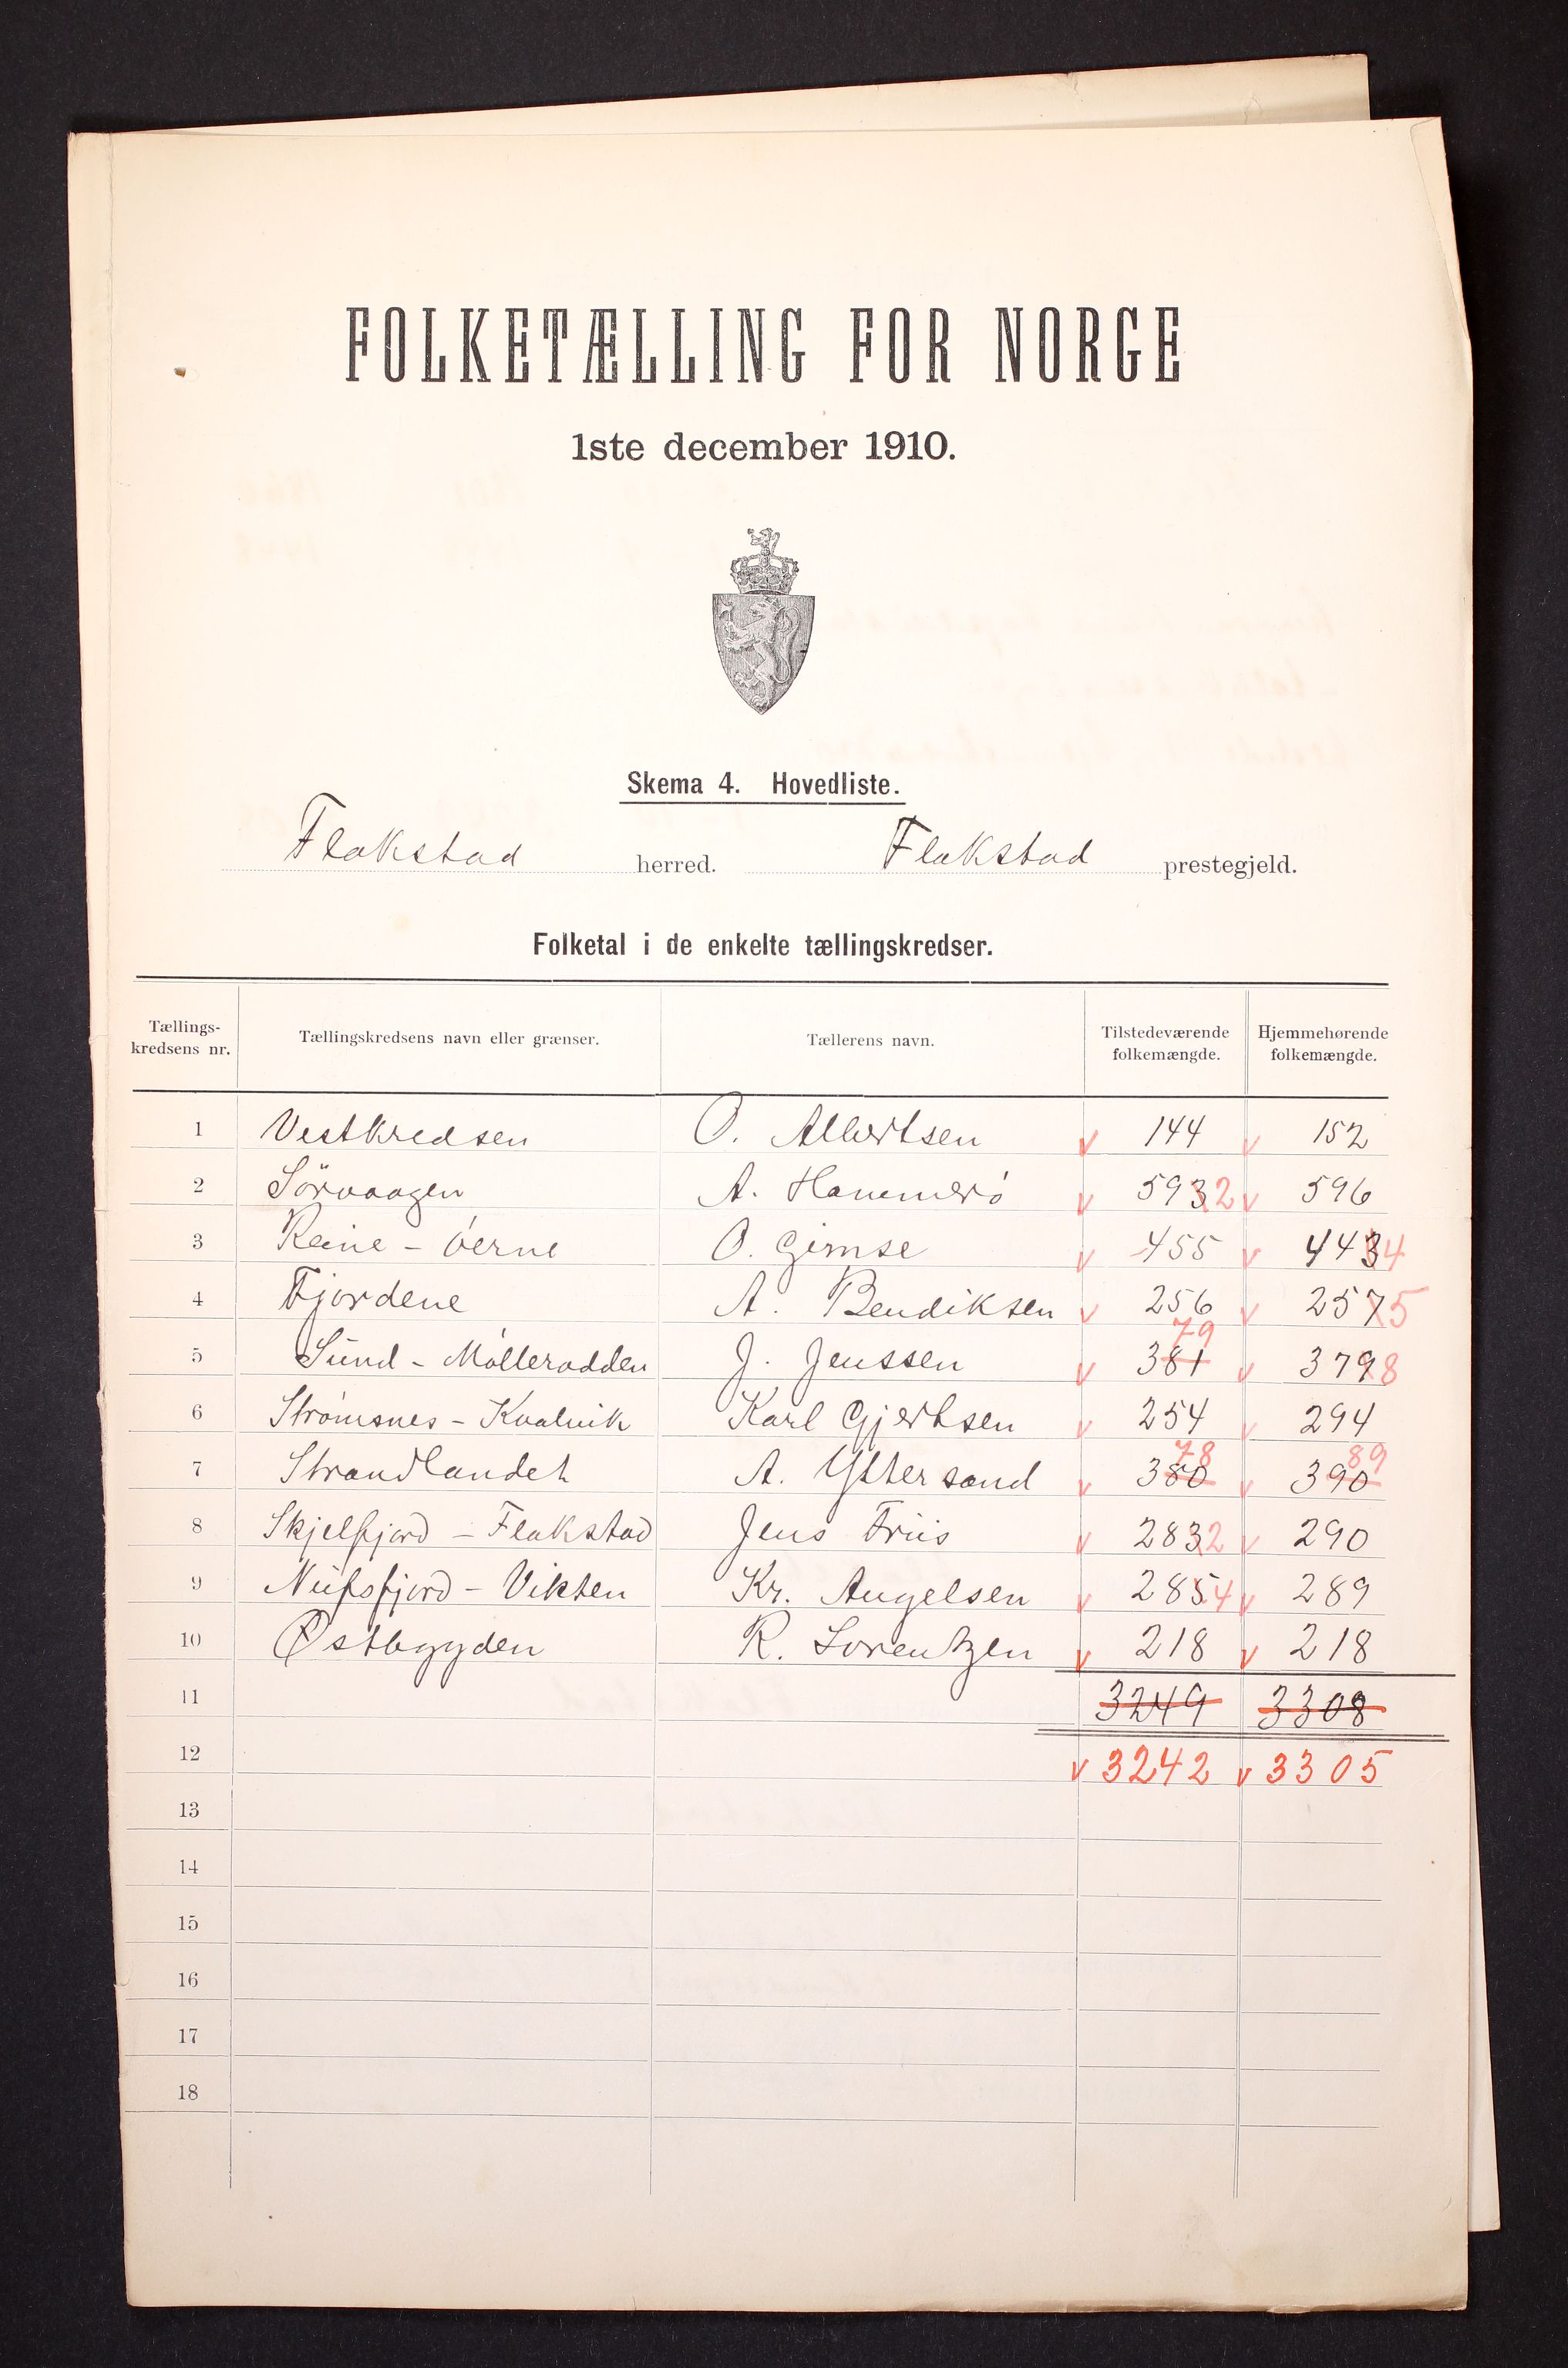 FOLKETÆLLING FOR NORGE
1ste december 1910.
Skema 4. Hovedliste.
Flakstad herred. Flakstad prestegjeld.
Folketal i de enkelte tællingskredser.
Tællings-kredsens nr. Tællingskredsens navn eller grænser. Tællerens navn. Tilstedeværende folkemængde. Hjemmehørende folkemængde.
1 Vestkredsen O. Albertsen v 144 v 152
2 Sörvaagen A. Hammerö v 5932 v 596
3 Reine - Öerne O. Gimse v 455 v 4434
4 Fjordene A. Bendiksen v 256 v 2575
5 Sund - Mölleradden J. Jenssen v 381 79 v 3798
6 Strömsnes - Kvalvik Karl Gjertsen v 254 v 294
7 Strandlandet A. Yttersand v 380 78 v 390 89
8 Skjelfjord - Flakstad Jens Friis v 2832 v 290
9 Nufsfjord - Vikten Kr. Angelsen v 2854 v 289
10 Østbygden R. Lorentzen v 218 v 218
11 3249 3308
12 v 3242 v 3305
13
14
15
16
17
18